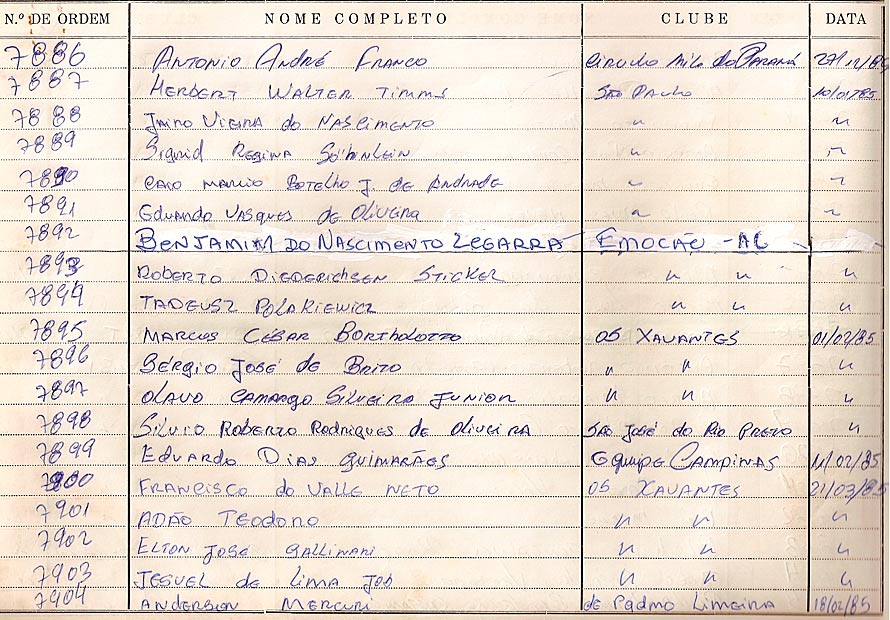 N.º DE ORDEM NOME COMPLETO CLUBE DATA
7886 ANTONIO ANDRÉ FRANCO Circulo do Paraná
7887 HERBERT WALTER TIMMS SÃO PAULO 10/01/85
7888 JAIRO VIEIRA do NASCIMENTO " "
7889 Sigrid REGINA " "
7890 CAIO MARCIO BOTELHO J. de ANDRADE " "
7891 EDUARDO VASQUES de OLIVEIRA " "
7892 BENJAMIM DO NASCIMENTO LEGARRA EMOCÃO -AL
7893 ROBERTO DIEDERICHSEN STICKEL " " "
7894 TADEUSZ POLAKIEWICZ " " "
7895 MARCOS CÉSAR BORTHOLOTTO OS XAVANTES 01/02/85
7896 SÉRGIO JOSÉ de BRITO " " "
7897 OLAVO CAMARGO SILVEIRA JUNIOR " " "
7898 SILVIO ROBERTO RODRIGUES de OLIVEIRA SÃO JOSÉ do RIO PRETO "
7899 EDUARDO DIAS GUIMARÃES EQUIPE CAMPINAS 11/02/85
7900 FRANCISCO do VALLE NETO OS XAVANTES 21/03/85
7901 ADÃO TEODORO " " "
7902 ELTON JOSÉ GALLINARI " " "
7903 JESUEL de LIMA JOB " " "
7904 ANDERSON MERCURI de PÁDMO LIMEIRA 18/02/85